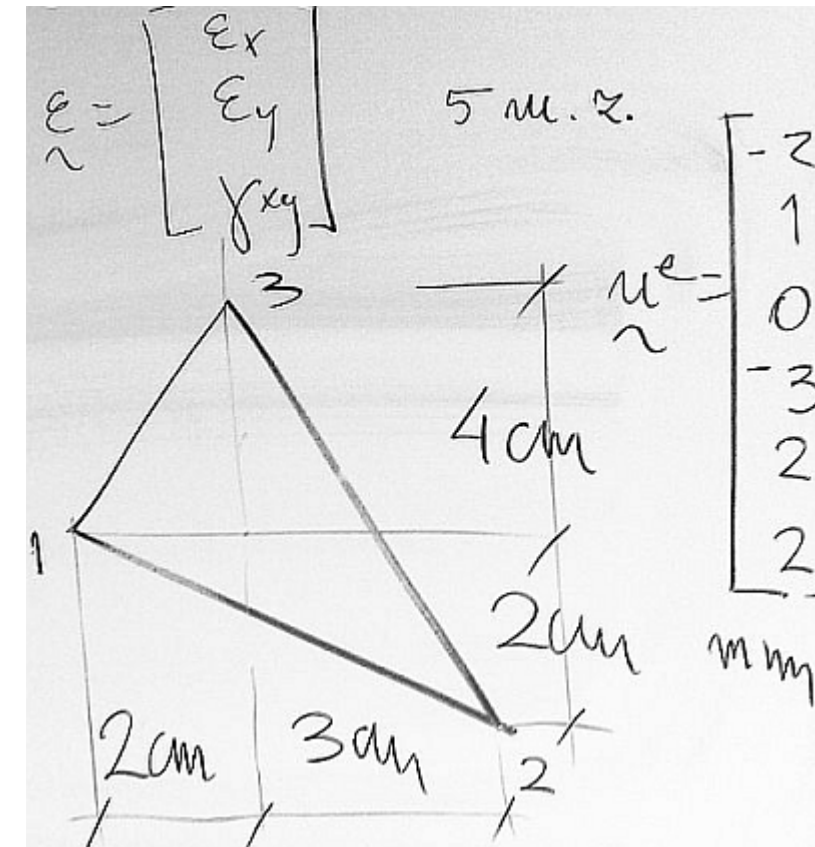 ε = [ εx
εy
γxy ]
5 m. z.
3
u^e = [ -2
1
0
-3
2
2 ]
mm
4cm
1
2cm
2cm
3cm
2